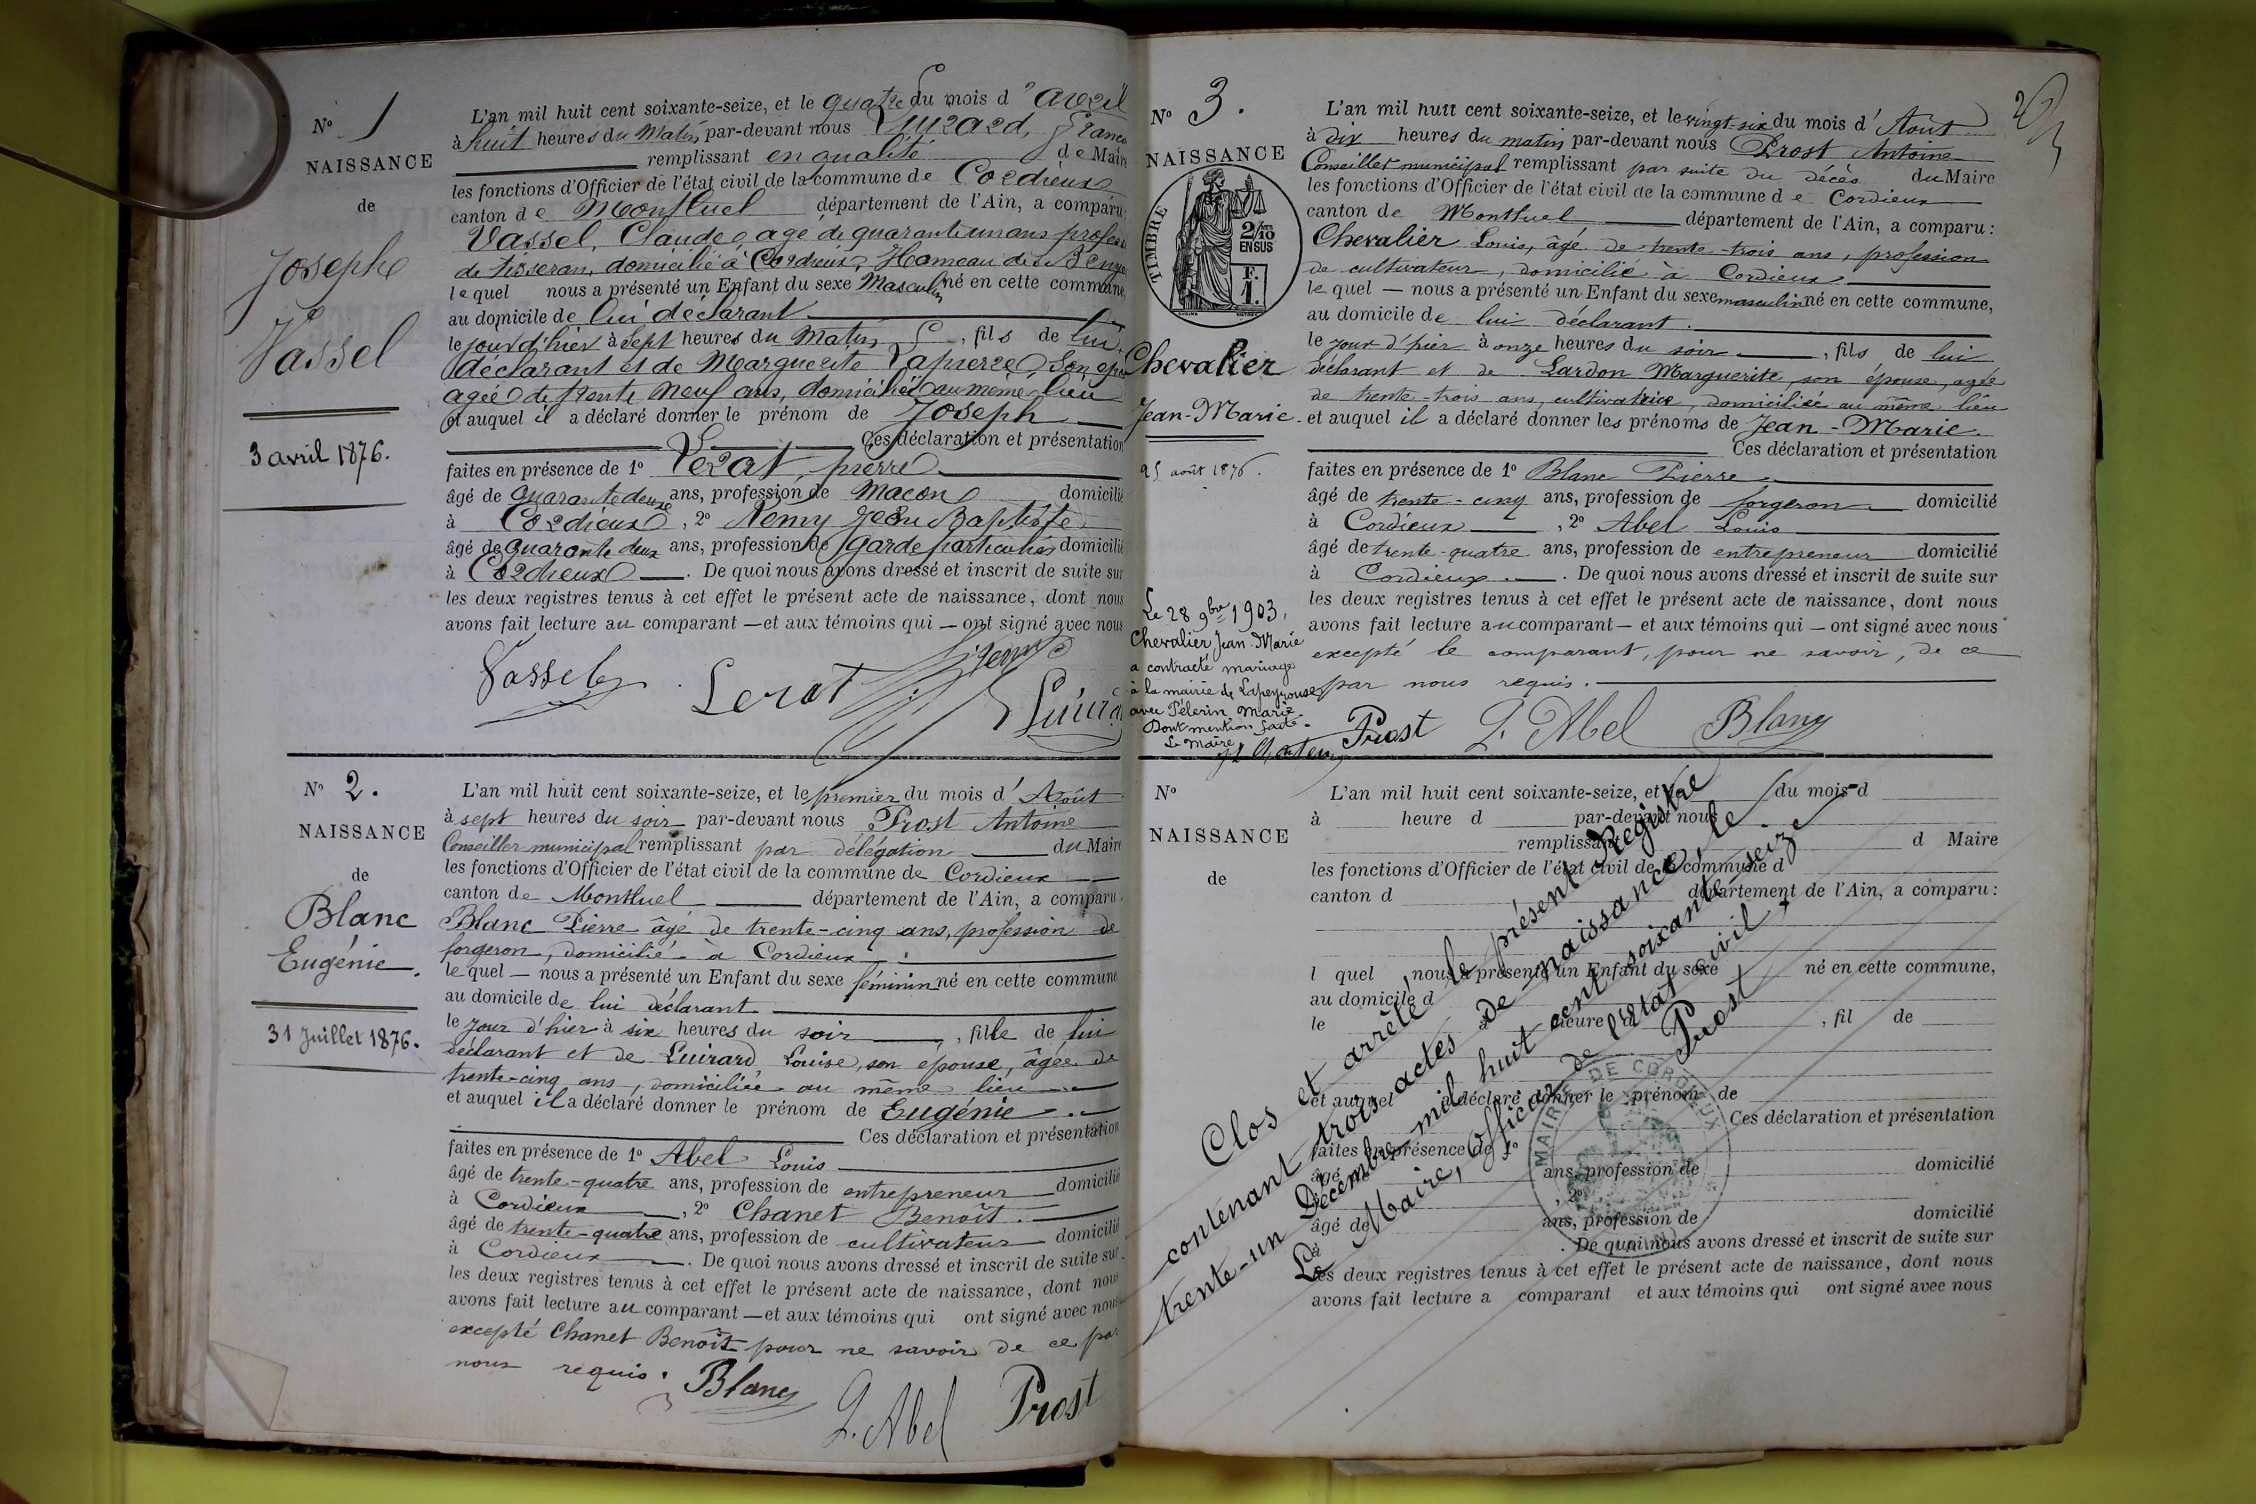 N° 1
NAISSANCE
de
Joseph
Vassel
3 avril 1876.
L'an mil huit cent soixante-seize, et le quatre du mois d' avril
à huit heures du Matin par-devant nous Luirard, Franco
remplissant en qualité de Maire
les fonctions d'Officier de l'état civil de la commune de Cordieux
canton de Montluel département de l'Ain, a comparu
Vassel, Claude agé de quarante un ans profession
de tisseran, domicilié à Cordieux, Hameau de
le quel nous a présenté un Enfant du sexe Masculin né en cette commune,
au domicile de lui déclarant
le jour d'hier à Sept heures du Matin, fils de lui
déclarant et de Marguerite Lapierre, Son épouse
agée de trente neuf ans, domiciliée au même lieu
et auquel il a déclaré donner le prénom de Joseph
Ces déclaration et présentation
faites en présence de 1° Lerat, pierre
âgé de quarante deux ans, profession de macon domicilié
à Cordieux, 2° Remy Jean Baptiste
âgé de quarante deux ans, profession de garde particulier domicilié
à Cordieux. De quoi nous avons dressé et inscrit de suite sur
les deux registres tenus à cet effet le présent acte de naissance, dont nous
avons fait lecture au comparant — et aux témoins qui — ont signé avec nous
Vassel Lerat Remy Luirard
N° 2.
NAISSANCE
de
Blanc
Eugénie.
31 Juillet 1876.
L'an mil huit cent soixante-seize, et le premier du mois d' Août
à sept heures du soir par-devant nous Prost Antoine
Conseiller municipal remplissant par délégation du Maire
les fonctions d'Officier de l'état civil de la commune de Cordieux
canton de Montluel département de l'Ain, a comparu
Blanc Pierre âgé de trente-cinq ans, profession de
forgeron, domicilié à Cordieux.
le quel — nous a présenté un Enfant du sexe féminin né en cette commune
au domicile de lui déclarant
le jour d'hier à six heures du soir, fille de lui
déclarant et de Luirard Louise, son epouse, âgée de
trente-cinq ans, domiciliée au même lieu
et auquel il a déclaré donner le prénom de Eugénie.
Ces déclaration et présentation
faites en présence de 1° Abel Louis
âgé de trente-quatre ans, profession de entrepreneur domicilié
à Cordieux, 2° Chanet Benoît.
âgé de trente-quatre ans, profession de cultivateur domicilié
à Cordieux. De quoi nous avons dressé et inscrit de suite sur
les deux registres tenus à cet effet le présent acte de naissance, dont nous
avons fait lecture au comparant — et aux témoins qui ont signé avec nous
excepté Chanet Benoît pour ne savoir de ce par
nous requis. Blanc
L. Abel Prost
N° 3.
NAISSANCE
TIMBRE
2/10
EN SUS
F.
1.
Chevalier
Jean-Marie.
25 août 1876.
Le 28 9bre 1903,
Chevalier Jean-Marie
a contracté mariage
à la mairie de Lapeyrouse
avec Pélerin Marie
Dont mention faite.
Le Maire,
L'an mil huit cent soixante-seize, et le vingt-six du mois d' Août
à dix heures du matin par-devant nous Prost Antoine
Conseiller municipal remplissant par suite du décès du Maire
les fonctions d'Officier de l'état civil de la commune de Cordieux
canton de Montluel département de l'Ain, a comparu :
Chevalier Louis, âgé de trente-trois ans, profession
de cultivateur, domicilié à Cordieux.
le quel — nous a présenté un Enfant du sexe masculin né en cette commune,
au domicile de lui déclarant.
le jour d'hier à onze heures du soir, fils de lui
déclarant et de Lardon Marguerite, son épouse, agée
de trente-trois ans, cultivatrice, domiciliée au même lieu
et auquel il a déclaré donner les prénoms de Jean-Marie.
Ces déclaration et présentation
faites en présence de 1° Blanc Pierre
âgé de trente-cinq ans, profession de forgeron domicilié
à Cordieux, 2° Abel Louis
âgé de trente-quatre ans, profession de entrepreneur domicilié
à Cordieux. De quoi nous avons dressé et inscrit de suite sur
les deux registres tenus à cet effet le présent acte de naissance, dont nous
avons fait lecture au comparant — et aux témoins qui — ont signé avec nous
excepté le comparant, pour ne savoir, de ce
par nous requis.
Prost L. Abel Blanc
N°
NAISSANCE
de
L'an mil huit cent soixante-seize, et le du mois d
à heure d par-devant nous
remplissant d Maire
les fonctions d'Officier de l'état civil de la commune d
canton d département de l'Ain, a comparu :
l quel nous a présenté un Enfant du sexe né en cette commune,
au domicile d
le à heure d , fil de
et auquel a déclaré donner le prénom de
Ces déclaration et présentation
faites en présence de 1°
âgé ans, profession de domicilié
, 2°
âgé de ans, profession de domicilié
à . De quoi nous avons dressé et inscrit de suite sur
les deux registres tenus à cet effet le présent acte de naissance, dont nous
avons fait lecture a comparant et aux témoins qui ont signé avec nous
Clos et arrêté, le présent Registre
contenant trois actes de naissance, le
trente-un Décembre mil huit cent soixante-seize
Le Maire, Officier de l'état civil,
Prost
MAIRIE DE CORDIEUX